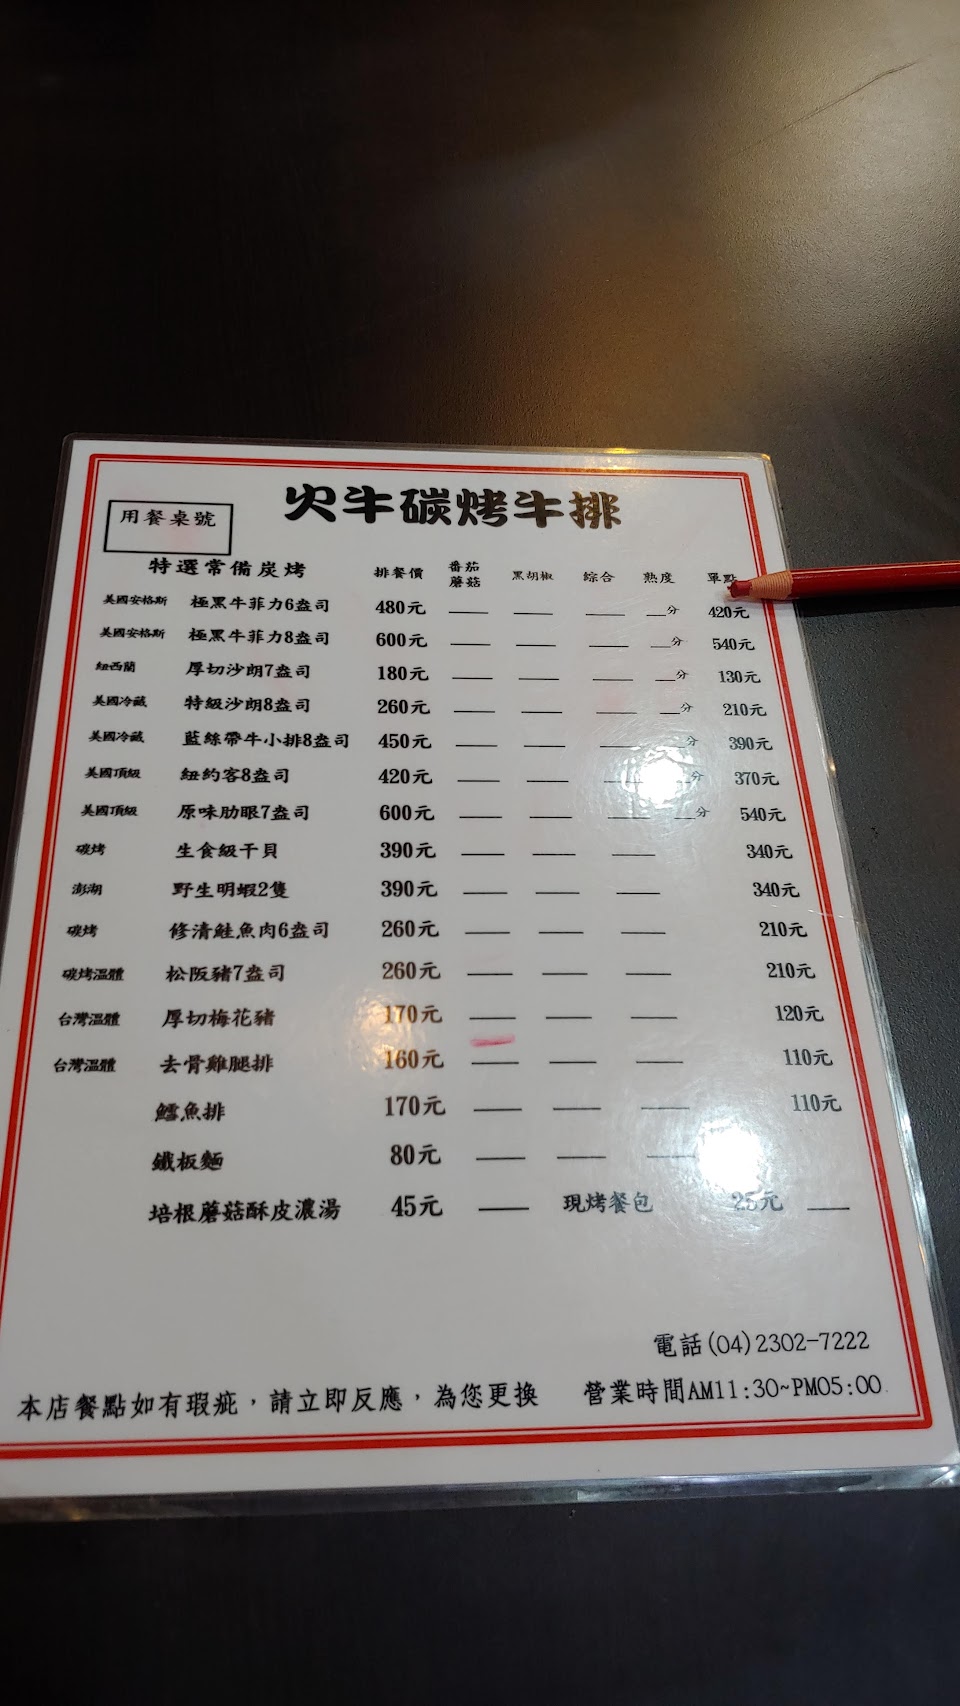 火牛碳烤牛排
用餐桌號
特選常備炭烤 排餐價 番茄蘑菇 黑胡椒 綜合 熟度 單點
美國安格斯 極黑牛菲力6盎司 480元 分 420元
美國安格斯 極黑牛菲力8盎司 600元 分 540元
紐西蘭 厚切沙朗7盎司 180元 分 130元
美國冷藏 特級沙朗8盎司 260元 分 210元
美國冷藏 藍絲帶牛小排8盎司 450元 分 390元
美國頂級 紐約客8盎司 420元 分 370元
美國頂級 原味肋眼7盎司 600元 分 540元
碳烤 生食級干貝 390元 340元
澎湖 野生明蝦2隻 390元 340元
碳烤 修清鮭魚肉6盎司 260元 210元
碳烤溫體 松阪豬7盎司 260元 210元
台灣溫體 厚切梅花豬 170元 120元
台灣溫體 去骨雞腿排 160元 110元
鱈魚排 170元 110元
鐵板麵 80元
培根蘑菇酥皮濃湯 45元 現烤餐包 25元
電話(04)2302-7222
本店餐點如有瑕疵，請立即反應，為您更換 營業時間AM11:30~PM05:00